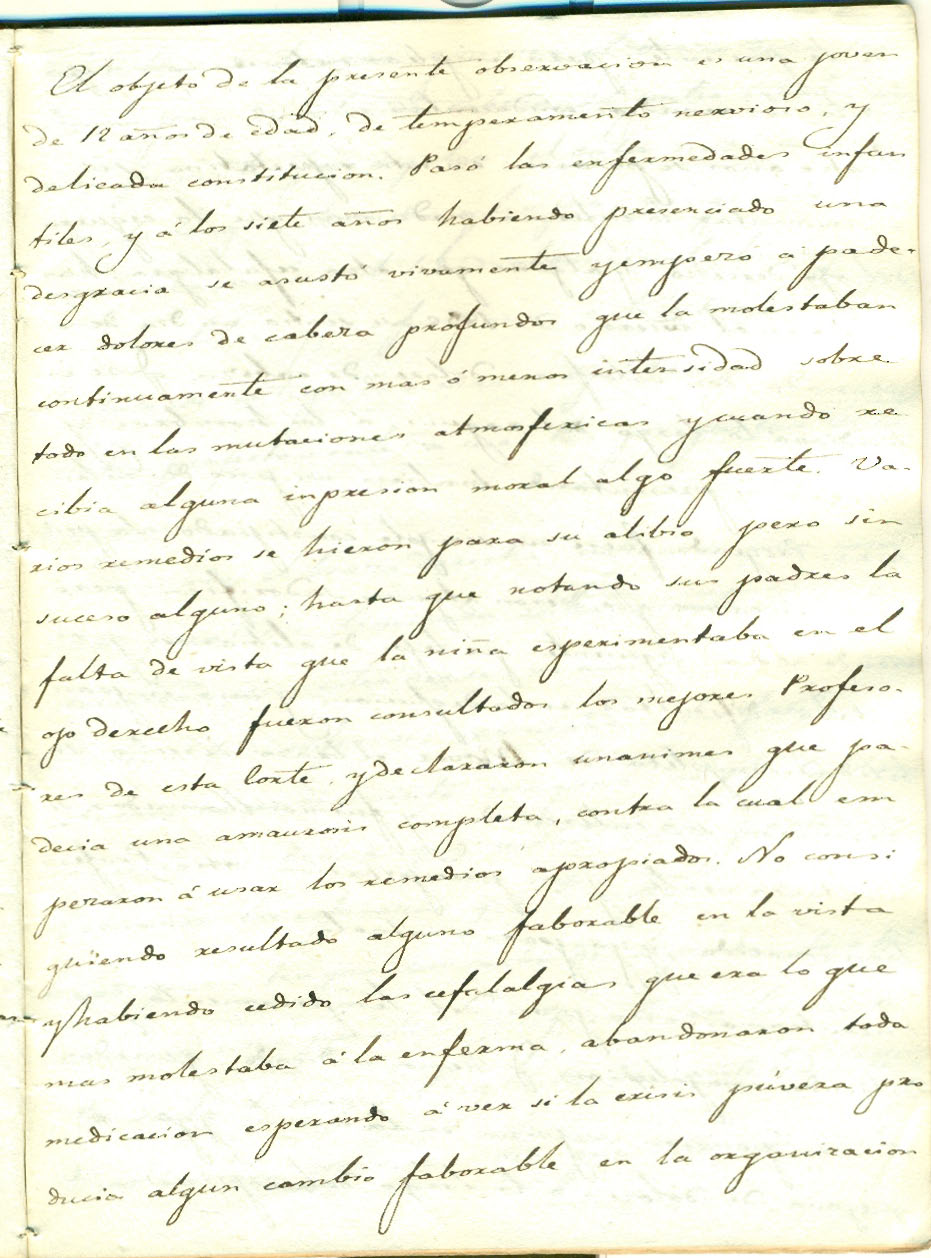 El objeto de la presente observacion es una joven
de 12 años de edad, de temperamento nervioso, y
delicada constitucion. Pasó las enfermedades infan
tiles, y á los siete años habiendo presenciado una
desgracia se asustó vivamente y empezó á pade-
cer dolores de cabeza profundos que la molestaban
continuamente con mas ó menos intensidad sobre
todo en las mutaciones atmosfericas y cuando re
cibia alguna inpresion moral algo fuerte. Va-
rios remedios se hieron para su alibio pero sin
suceso alguno; hasta que notando sus padres la
falta de vista que la niña esperimentaba en el
ojo derecho fueron consultados los mejores Profeso-
res de esta Corte, y declararon unanimes que pa-
decia una amaurosis completa, contra la cual em
pezaron á usar los remedios apropiados. No consi
guiendo resultado alguno faborable en la vista
y habiendo cedido las cefalalgias que era lo que
mas molestaba á la enferma, abandonaron toda
medicacion esperando á ver si la crisis púvera pro
ducia algun cambio faborable en la organizacion